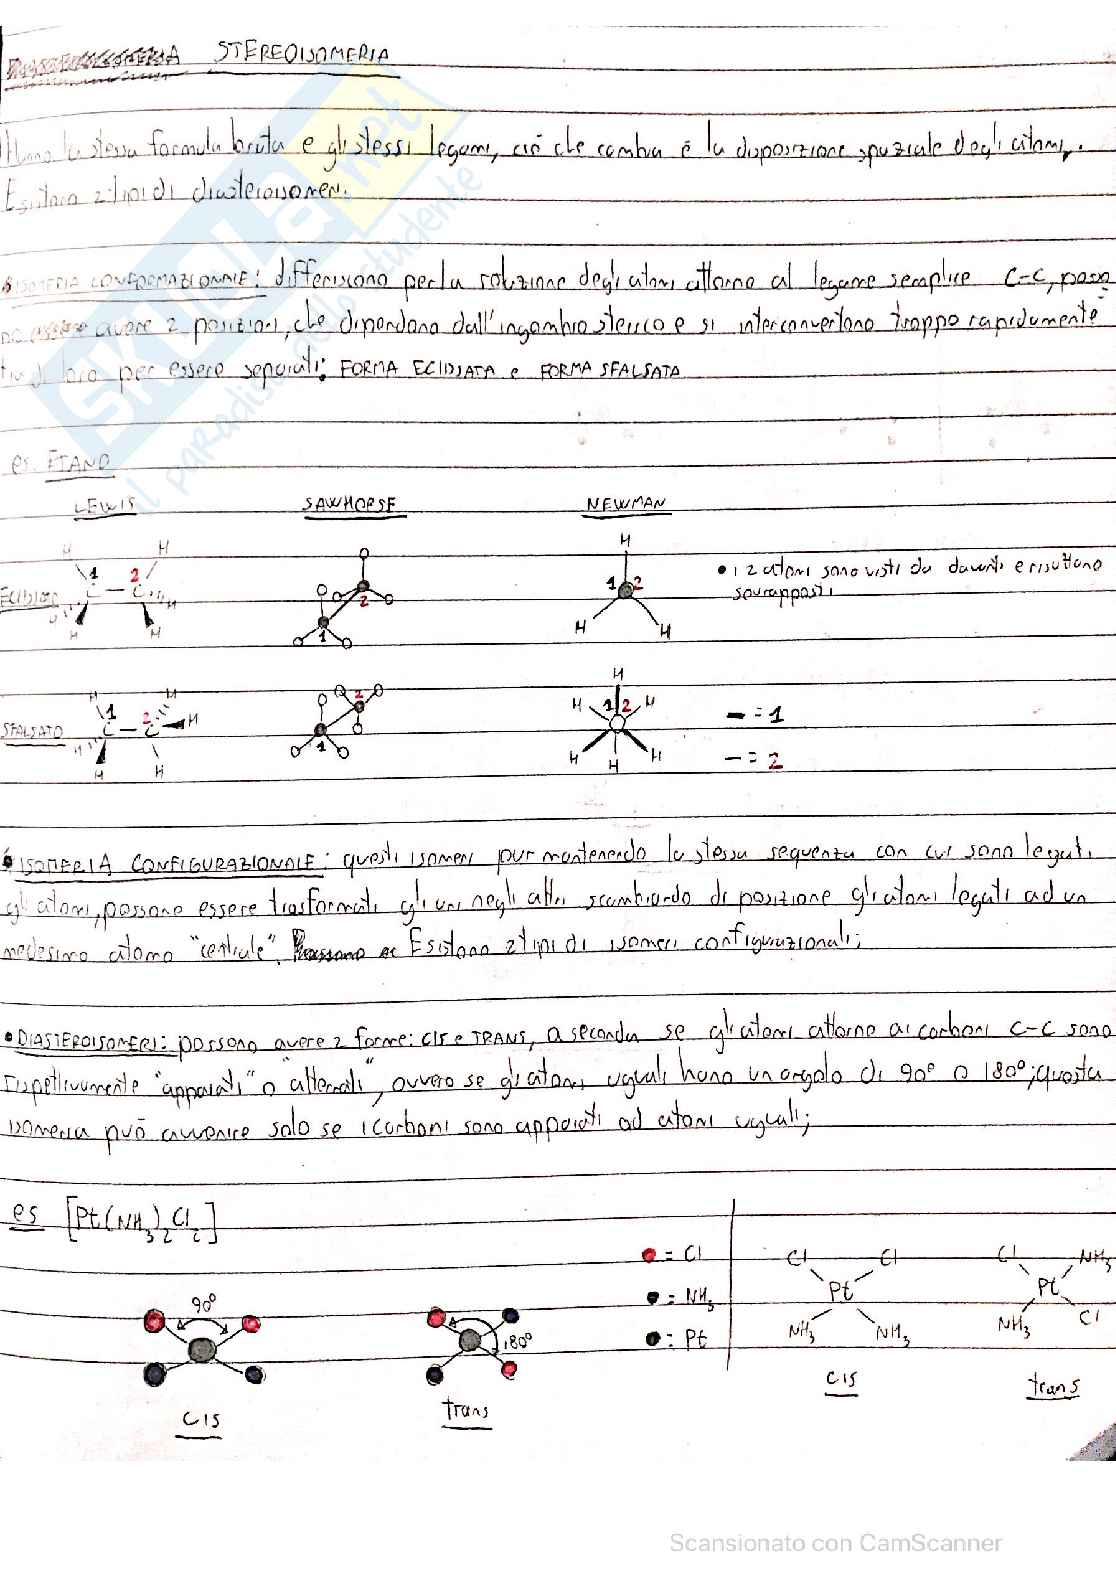 STEREOISOMERIA
Hanno la stessa formula bruta e gli stessi legami, ciò che cambia è la disposizione spaziale degli atomi,.
Esistono 2 tipi di diasteroisomeri.
ISOMERIA CONFORMAZIONALE: differiscono per la rotazione degli atomi attorno al legame semplice C-C, posso
no avere 2 posizioni, che dipendono dall'ingombro sterico e si interconvertono troppo rapidamente
tra di loro per essere separati: FORMA ECLISSATA e FORMA SFALSATA
es. ETANO
LEWIS SAWHORSE NEWMAN
H H H
1 2 1 2 1 2 • i 2 atomi sono visti da davanti e risultano
C - C H H sovrapposti
H H H H
H H 2 H
1 2 H 1 2 H - = 1
SFALSATO C - C H 1
H H H H H H - = 2
• ISOMERIA CONFIGURAZIONALE: questi isomeri pur mantenendo la stessa sequenza con cui sono legati
gli atomi, possono essere trasformati gli uni negli altri scambiando di posizione gli atomi legati ad un
medesimo atomo "centrale". Esistono 2 tipi di isomeri configurazionali;
• DIASTEROISOMERI: possono avere 2 forme: CIS e TRANS, a seconda se gli atomi attorno ai carboni C-C sono
rispettivamente "appaiati" o "alternati", ovvero se gli atomi uguali hanno un angolo di 90° o 180°; questa
isomeria può avvenire solo se i carboni sono appaiati ad atomi uguali;
es [Pt(NH3)2Cl2]
= Cl Cl Cl Cl NH3
90° 180° = NH3 Pt Pt
: Pt NH3 NH3 NH3 Cl
cis trans cis trans
SKUOLA.net
il paradiso dello studente
Scansionato con CamScanner